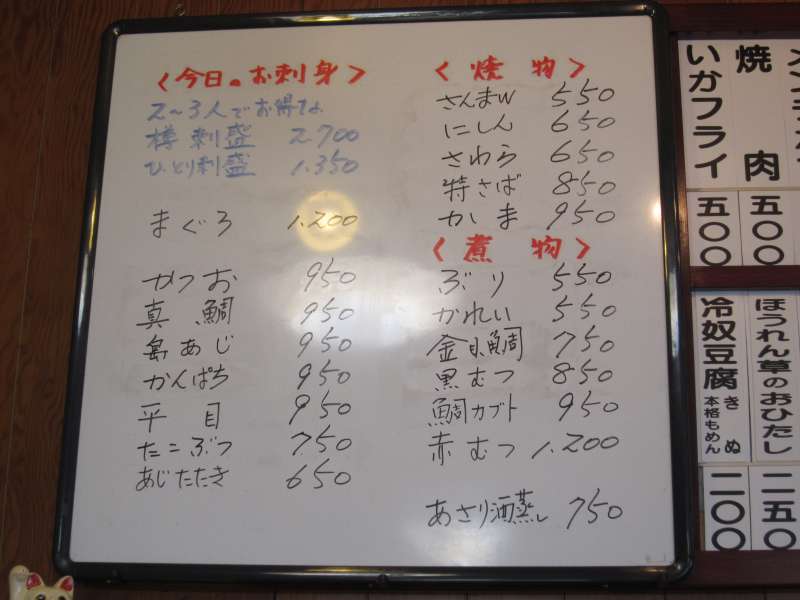 〈今日のお刺身〉
2〜3人でお得だよ
樽刺盛 2.700
ひとり刺盛 1.350
まぐろ 1.200
かつお 950
真鯛 950
島あじ 950
かんぱち 950
平目 950
たこぶつ 750
あじたたき 650
〈焼物〉
さんまW 550
にしん 650
さわら 650
特さば 850
かま 950
〈煮物〉
ぶり 550
かれい 550
金目鯛 750
黒むつ 850
鯛カブト 950
赤むつ 1.200
あさり酒蒸し 750
焼肉 五〇〇
いかフライ 五〇〇
ほうれん草のおひたし 二五〇
冷奴豆腐 きぬ 本格もめん 二〇〇